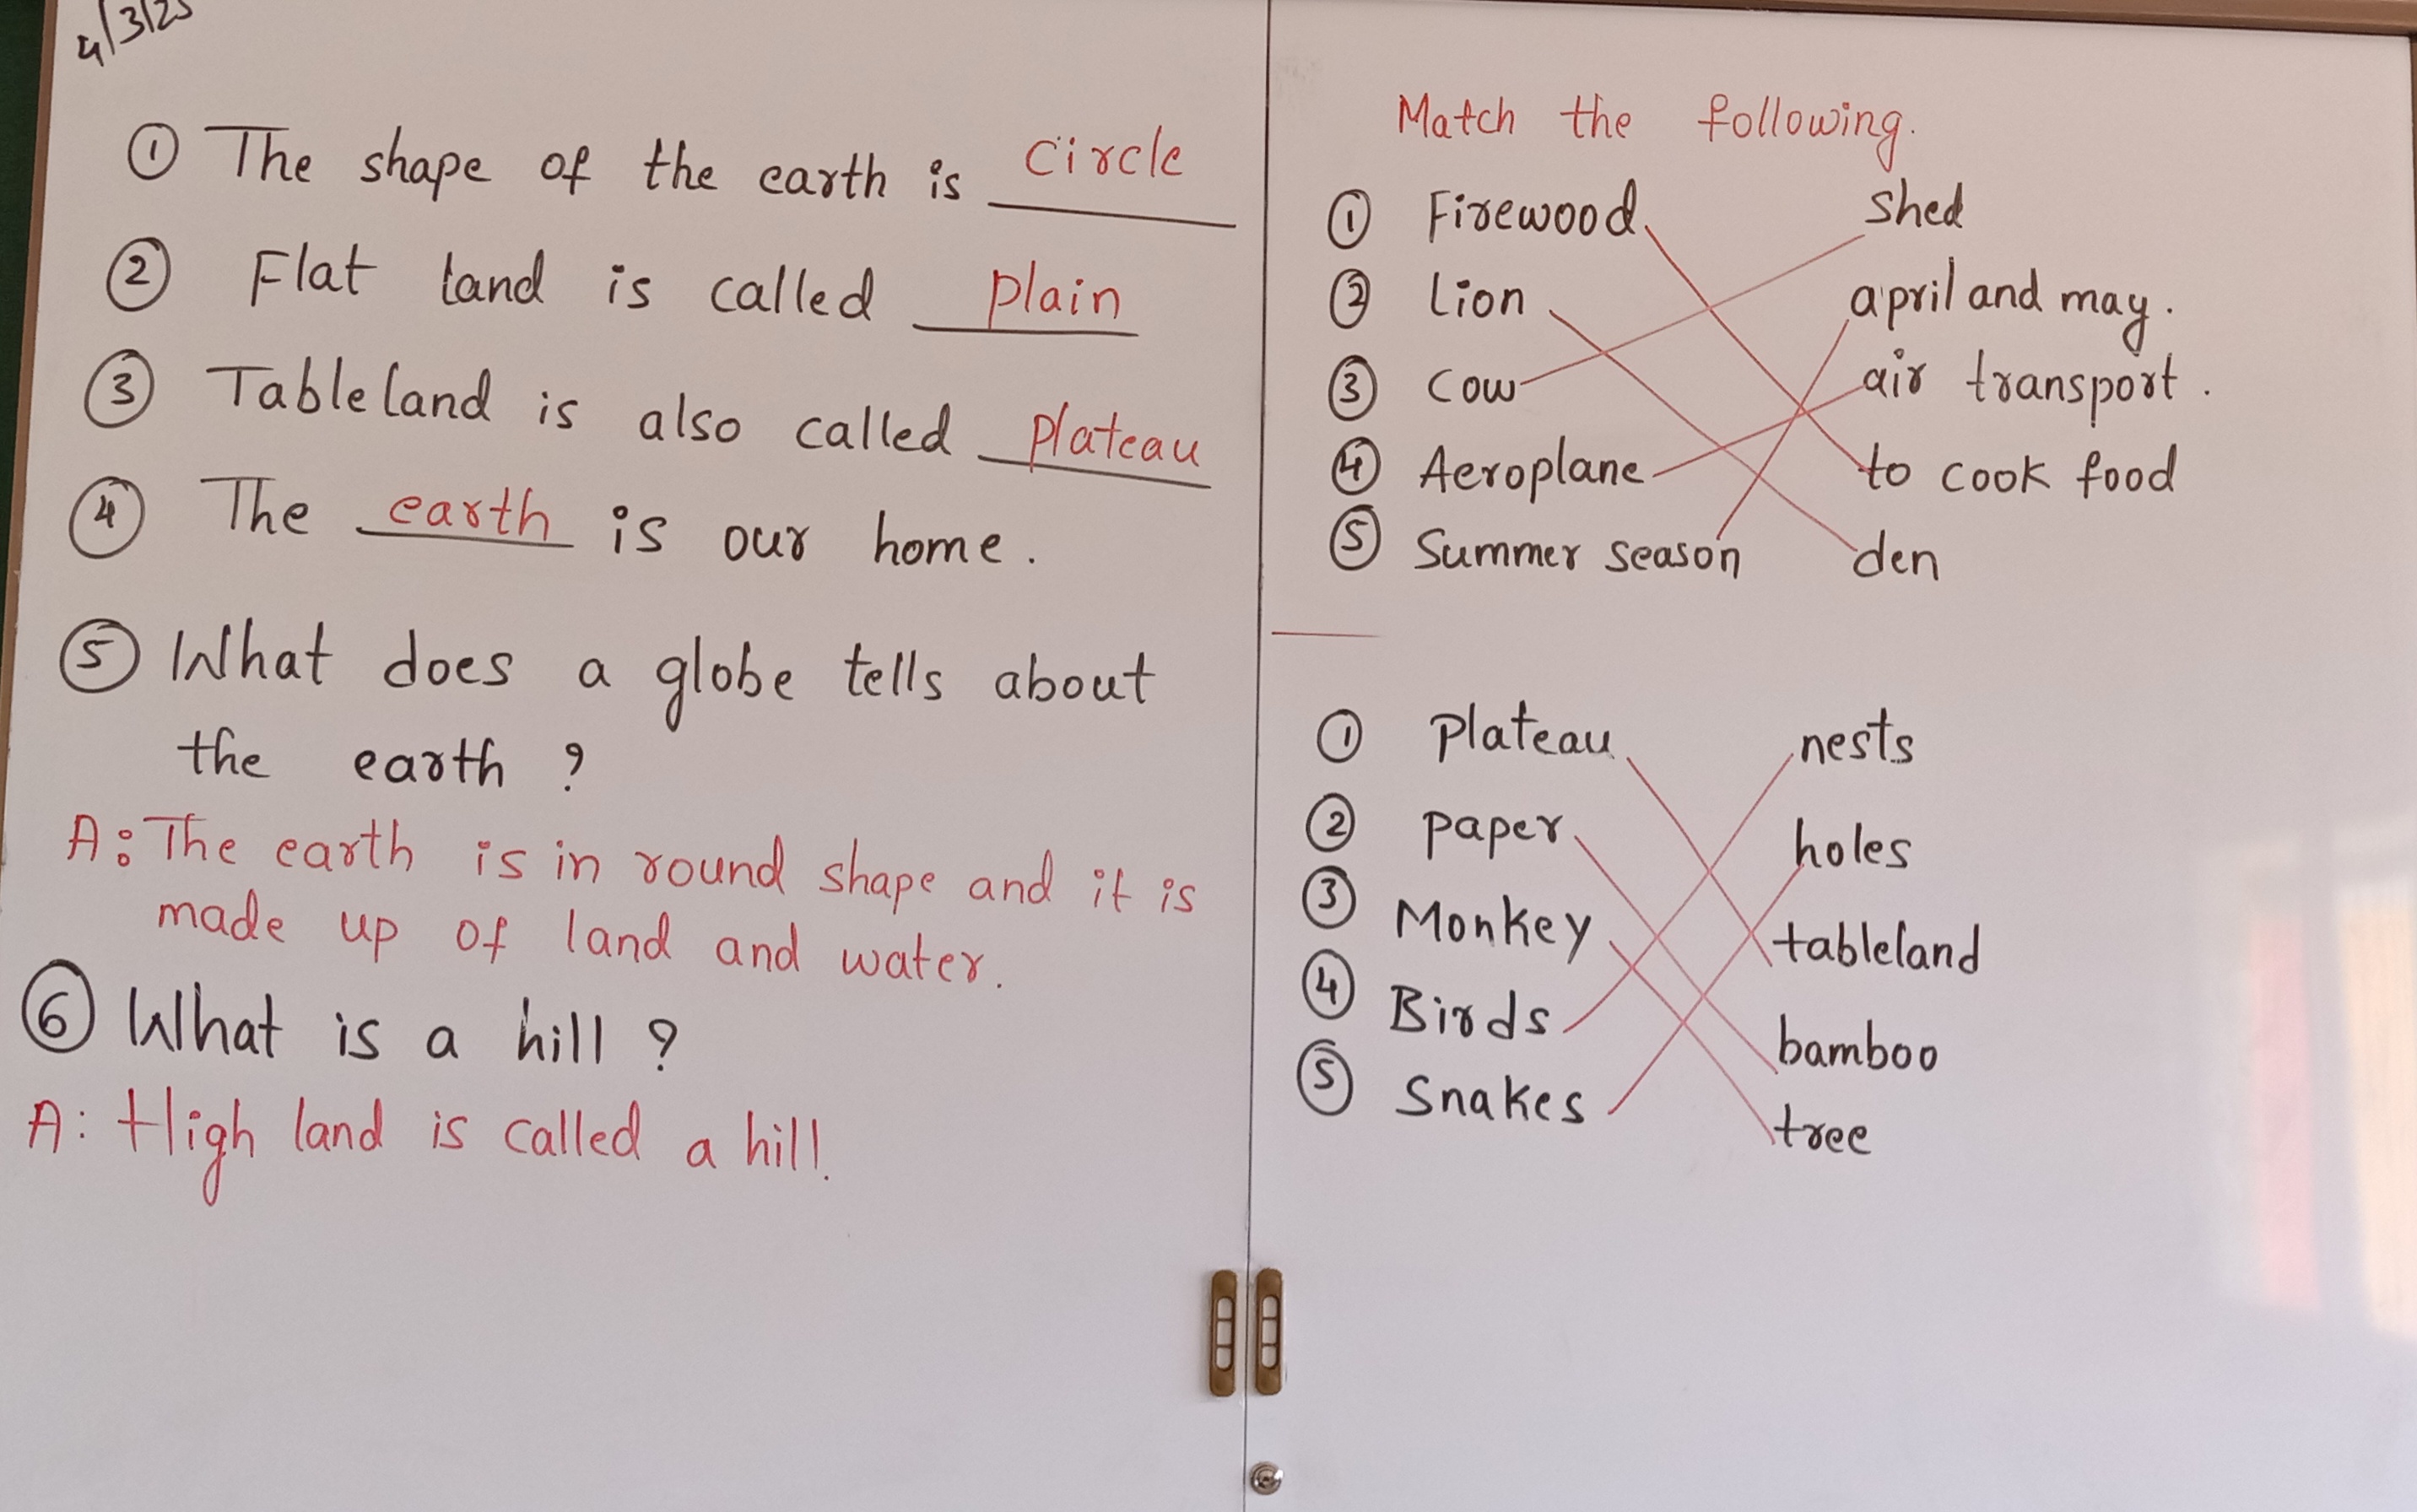 4/3/25
① The shape of the earth is circle
② Flat land is called plain
③ Tableland is also called plateau
④ The earth is our home.
⑤ What does a globe tells about
the earth ?
A: The earth is in round shape and it is
made up of land and water.
⑥ What is a hill ?
A: High land is called a hill.
Match the following.
① Firewood shed
② Lion april and may.
③ Cow air transport.
④ Aeroplane to cook food
⑤ Summer season den
① Plateau nests
② paper holes
③ Monkey tableland
④ Birds bamboo
⑤ Snakes tree